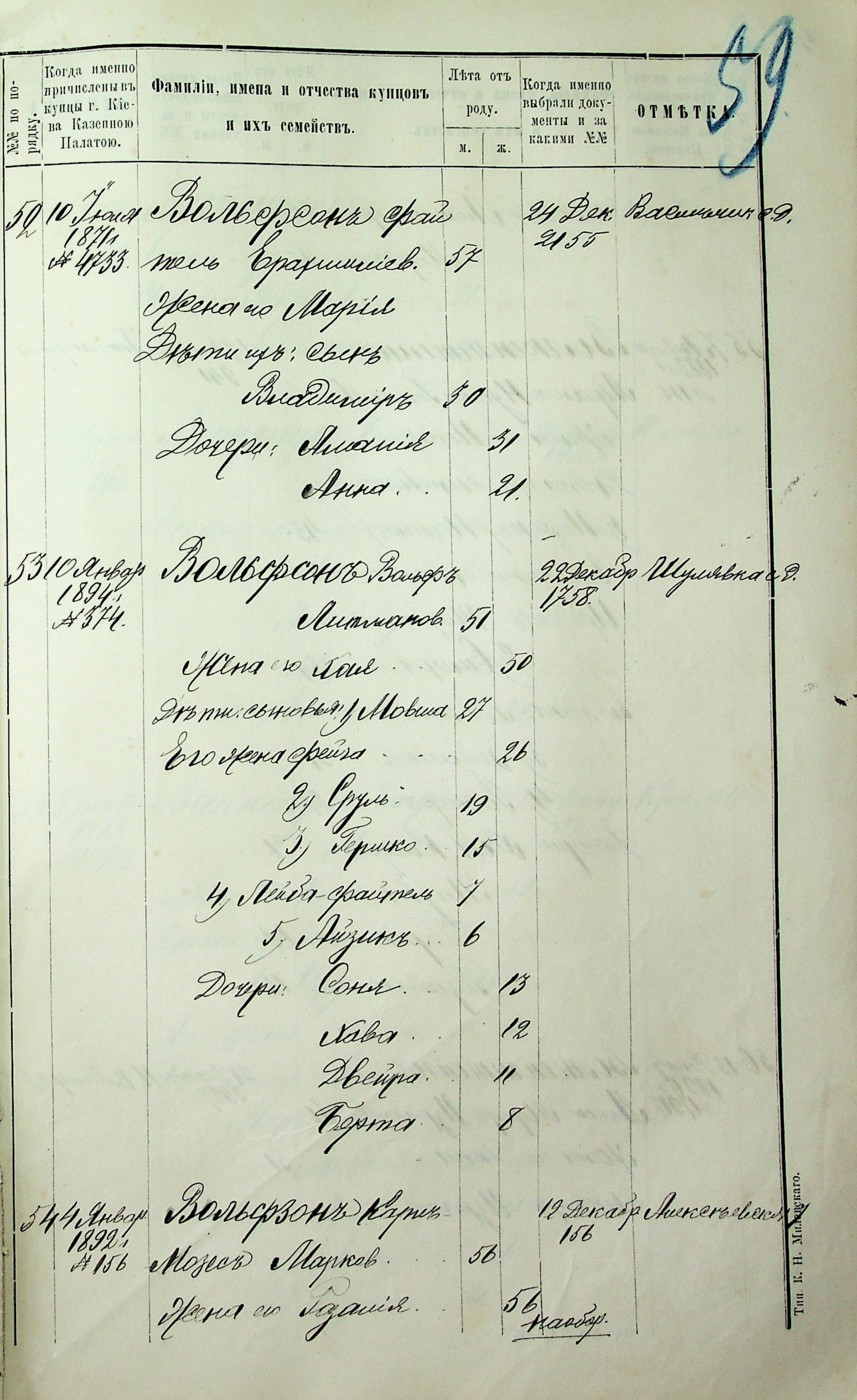 59
№№ по по-
рядку.
Когда именно
причислены въ
купцы г. Кіе-
ва Казенною
Палатою.
Фамиліи, имена и отчества купцовъ
и ихъ семействъ.
Лѣта отъ
роду.
м. ж.
Когда именно
выбрали доку-
менты и за
какими №№
ОТМѢТКА.
52 10 Іюля Вольфсонъ Фай 24 Дек.
1871 2155
№ 4733. тель 57
Жена его Марія
Дѣти ихъ: сынъ
Владиміръ 30
Дочери: 31
Анна. 21.
53 10 Январ Вольфсонъ Вольфъ 22 Декабр Шулявка с. Д.
1894 1758.
№ 374. Липманов. 51
Жена его Хая 50
Дѣти: сыновья: 1) Мовша 27
Его жена Фейга 26
2) Сруль 19
3) Гершко 15
4) Лейба-Файтель 7
5) Айзикъ 6
Дочери: Соня 13
Хава 12
Двейра 11
Берта 8
54 4 Январ. Вольфзонъ 12 Декабр Алексѣевская
1892 156
№ 156 Мозесъ Марков. 56
Жена его 56
наобор.
Тип. К. Н. Милевскаго.